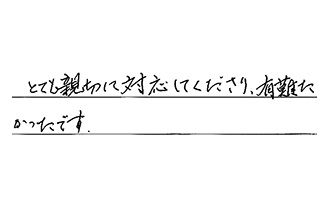 とても親切に対応してくださり、有難た
かったです.